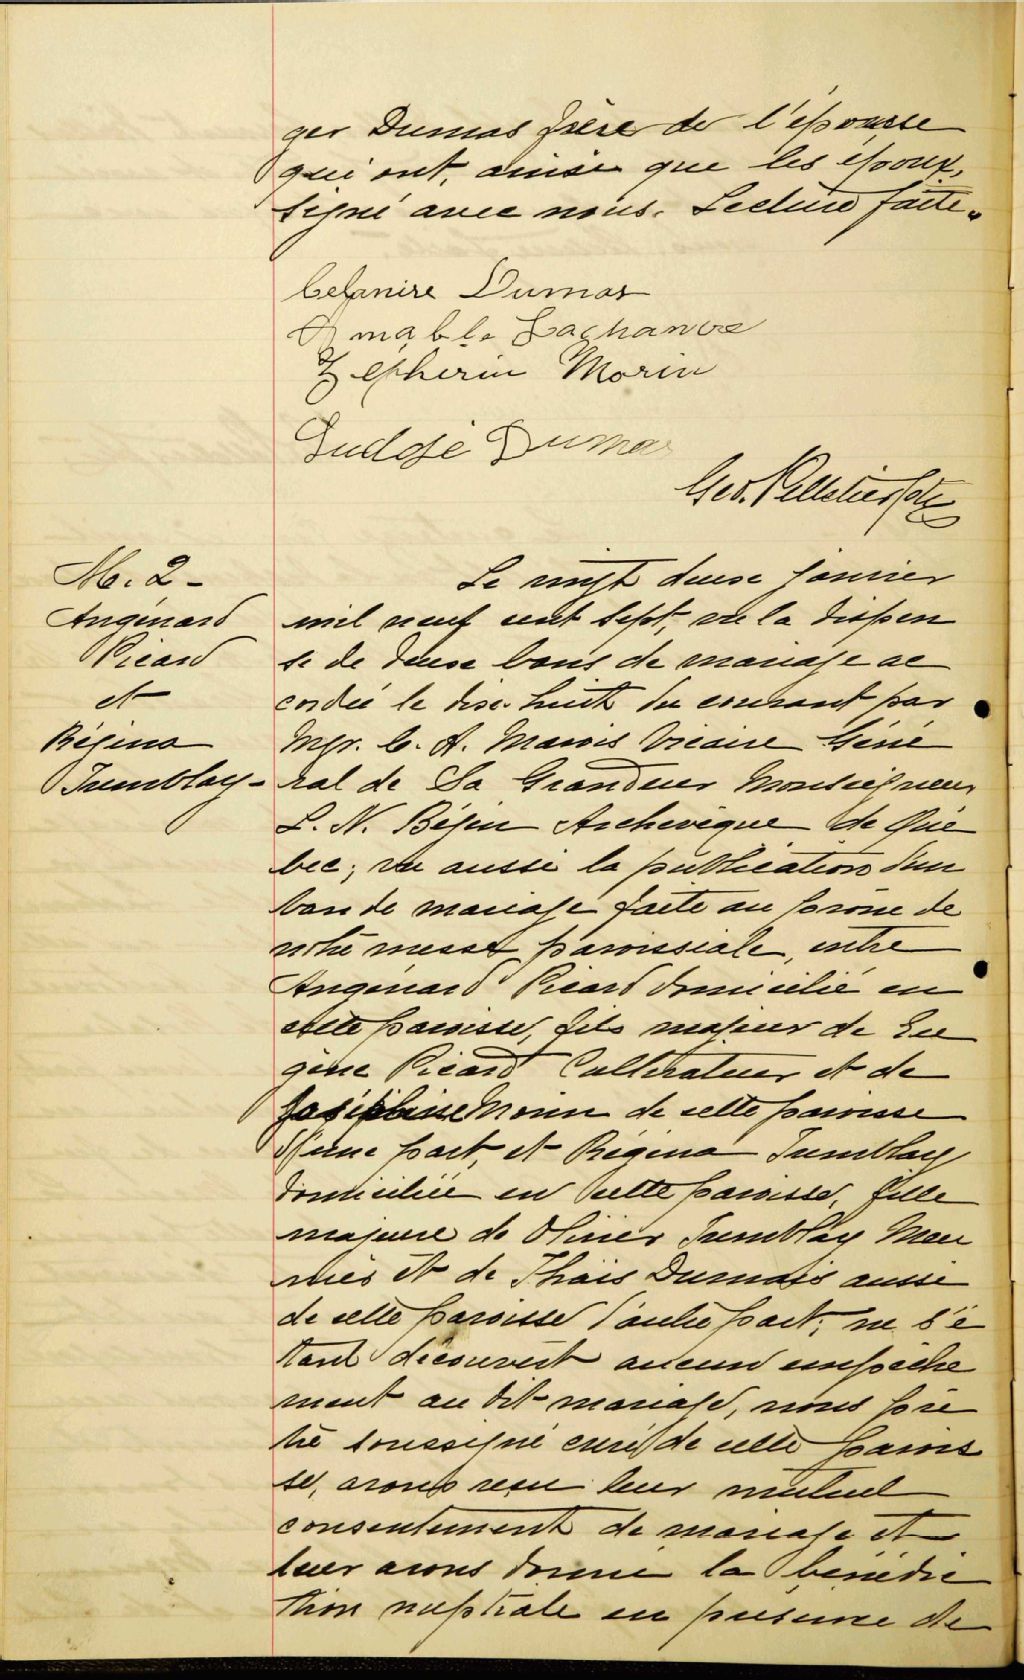 ger Dumas frère de l'épouse
qui ont, ainsi que les époux,
signé avec nous. Lecture faite.
Celanire Dumas
Amable Lachance
Zéphirin Morin
Dumas
Geo. Pelletier Ptre
M. 2 -
Angénard
Picard
et
Régina
Tremblay -
Le vingt deux janvier
mil neuf cent sept, vu la dispen
se de deux bans de mariage ac
cordée le dix-huit du courant par
Mgr. C. A. Marois Vicaire Géné
ral de Sa Grandeur Monseigneur
L. N. Bégin Archevêque de Qué
bec; vu aussi la publication d'un
ban de mariage faite au prône de
notre messe paroissiale, entre
Angénard Picard domicilié en
cette paroisse, fils majeur de Eu
gène Picard Cultivateur et de
Joséphine Morin de cette paroisse
d'une part, et Régina Tremblay
domiciliée en cette paroisse, fille
majeure de Olivier Tremblay Meu
nier et de Thaïs Dumais aussi
de cette paroisse d'autre part; ne s'é
tant découvert aucun empêche
ment au dit mariage, nous prê
tre soussigné curé de cette parois
se, avons reçu leur mutuel
consentement de mariage et
leur avons donné la bénédic
tion nuptiale en présence de